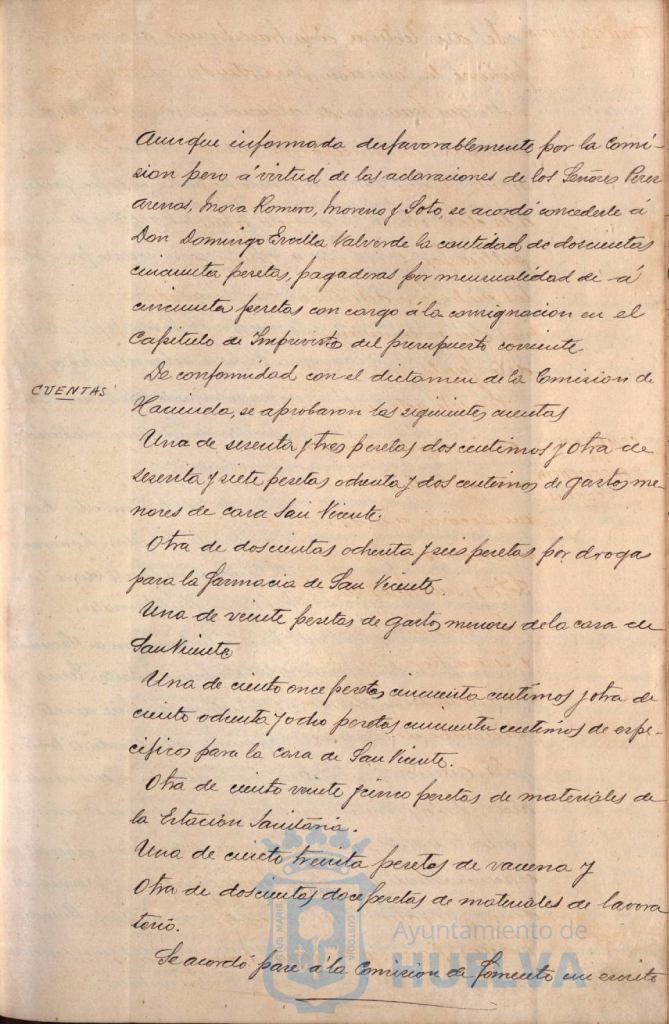 Aunque informada desfavorablemente por la Comi-
sion pero á virtud de las aclaraciones de los Señores Perez
Arenas, Mora Romero, Moreno y Soto, se acordó concederle á
Don Domingo Ercilla Valverde la cantidad de doscientas
cincuenta pesetas, pagaderas por mensualidad de á
cincuenta pesetas con cargo á la consignacion en el
Capitulo de Imprevisto del presupuesto corriente.
CUENTAS
De conformidad con el dictamen de la Comision de
Hacienda, se aprobaron las siguientes cuentas
Una de sesenta y tres pesetas dos centimos y otra de
sesenta y siete pesetas ochenta y dos centimos de gastos me-
nores de casa San Vicente.
Otra de doscientas ochenta y seis pesetas por drogas
para la farmacia de San Vicente.
Una de veinte pesetas de gastos menores de la casa de
San Vicente
Una de ciento once pesetas cincuenta centimos y otra de
ciento ochenta y ocho pesetas cincuenta centimos de espe-
cificos para la casa de San Vicente.
Otra de ciento veinte y cinco pesetas de materiales de
la Estación Sanitaria.
Una de ciento treinta pesetas de vacuna y
Otra de doscientas doce pesetas de materiales de lavora
torio.
Se acordó pase á la Comision de Fomento un escrito
Ayuntamiento de
HUELVA